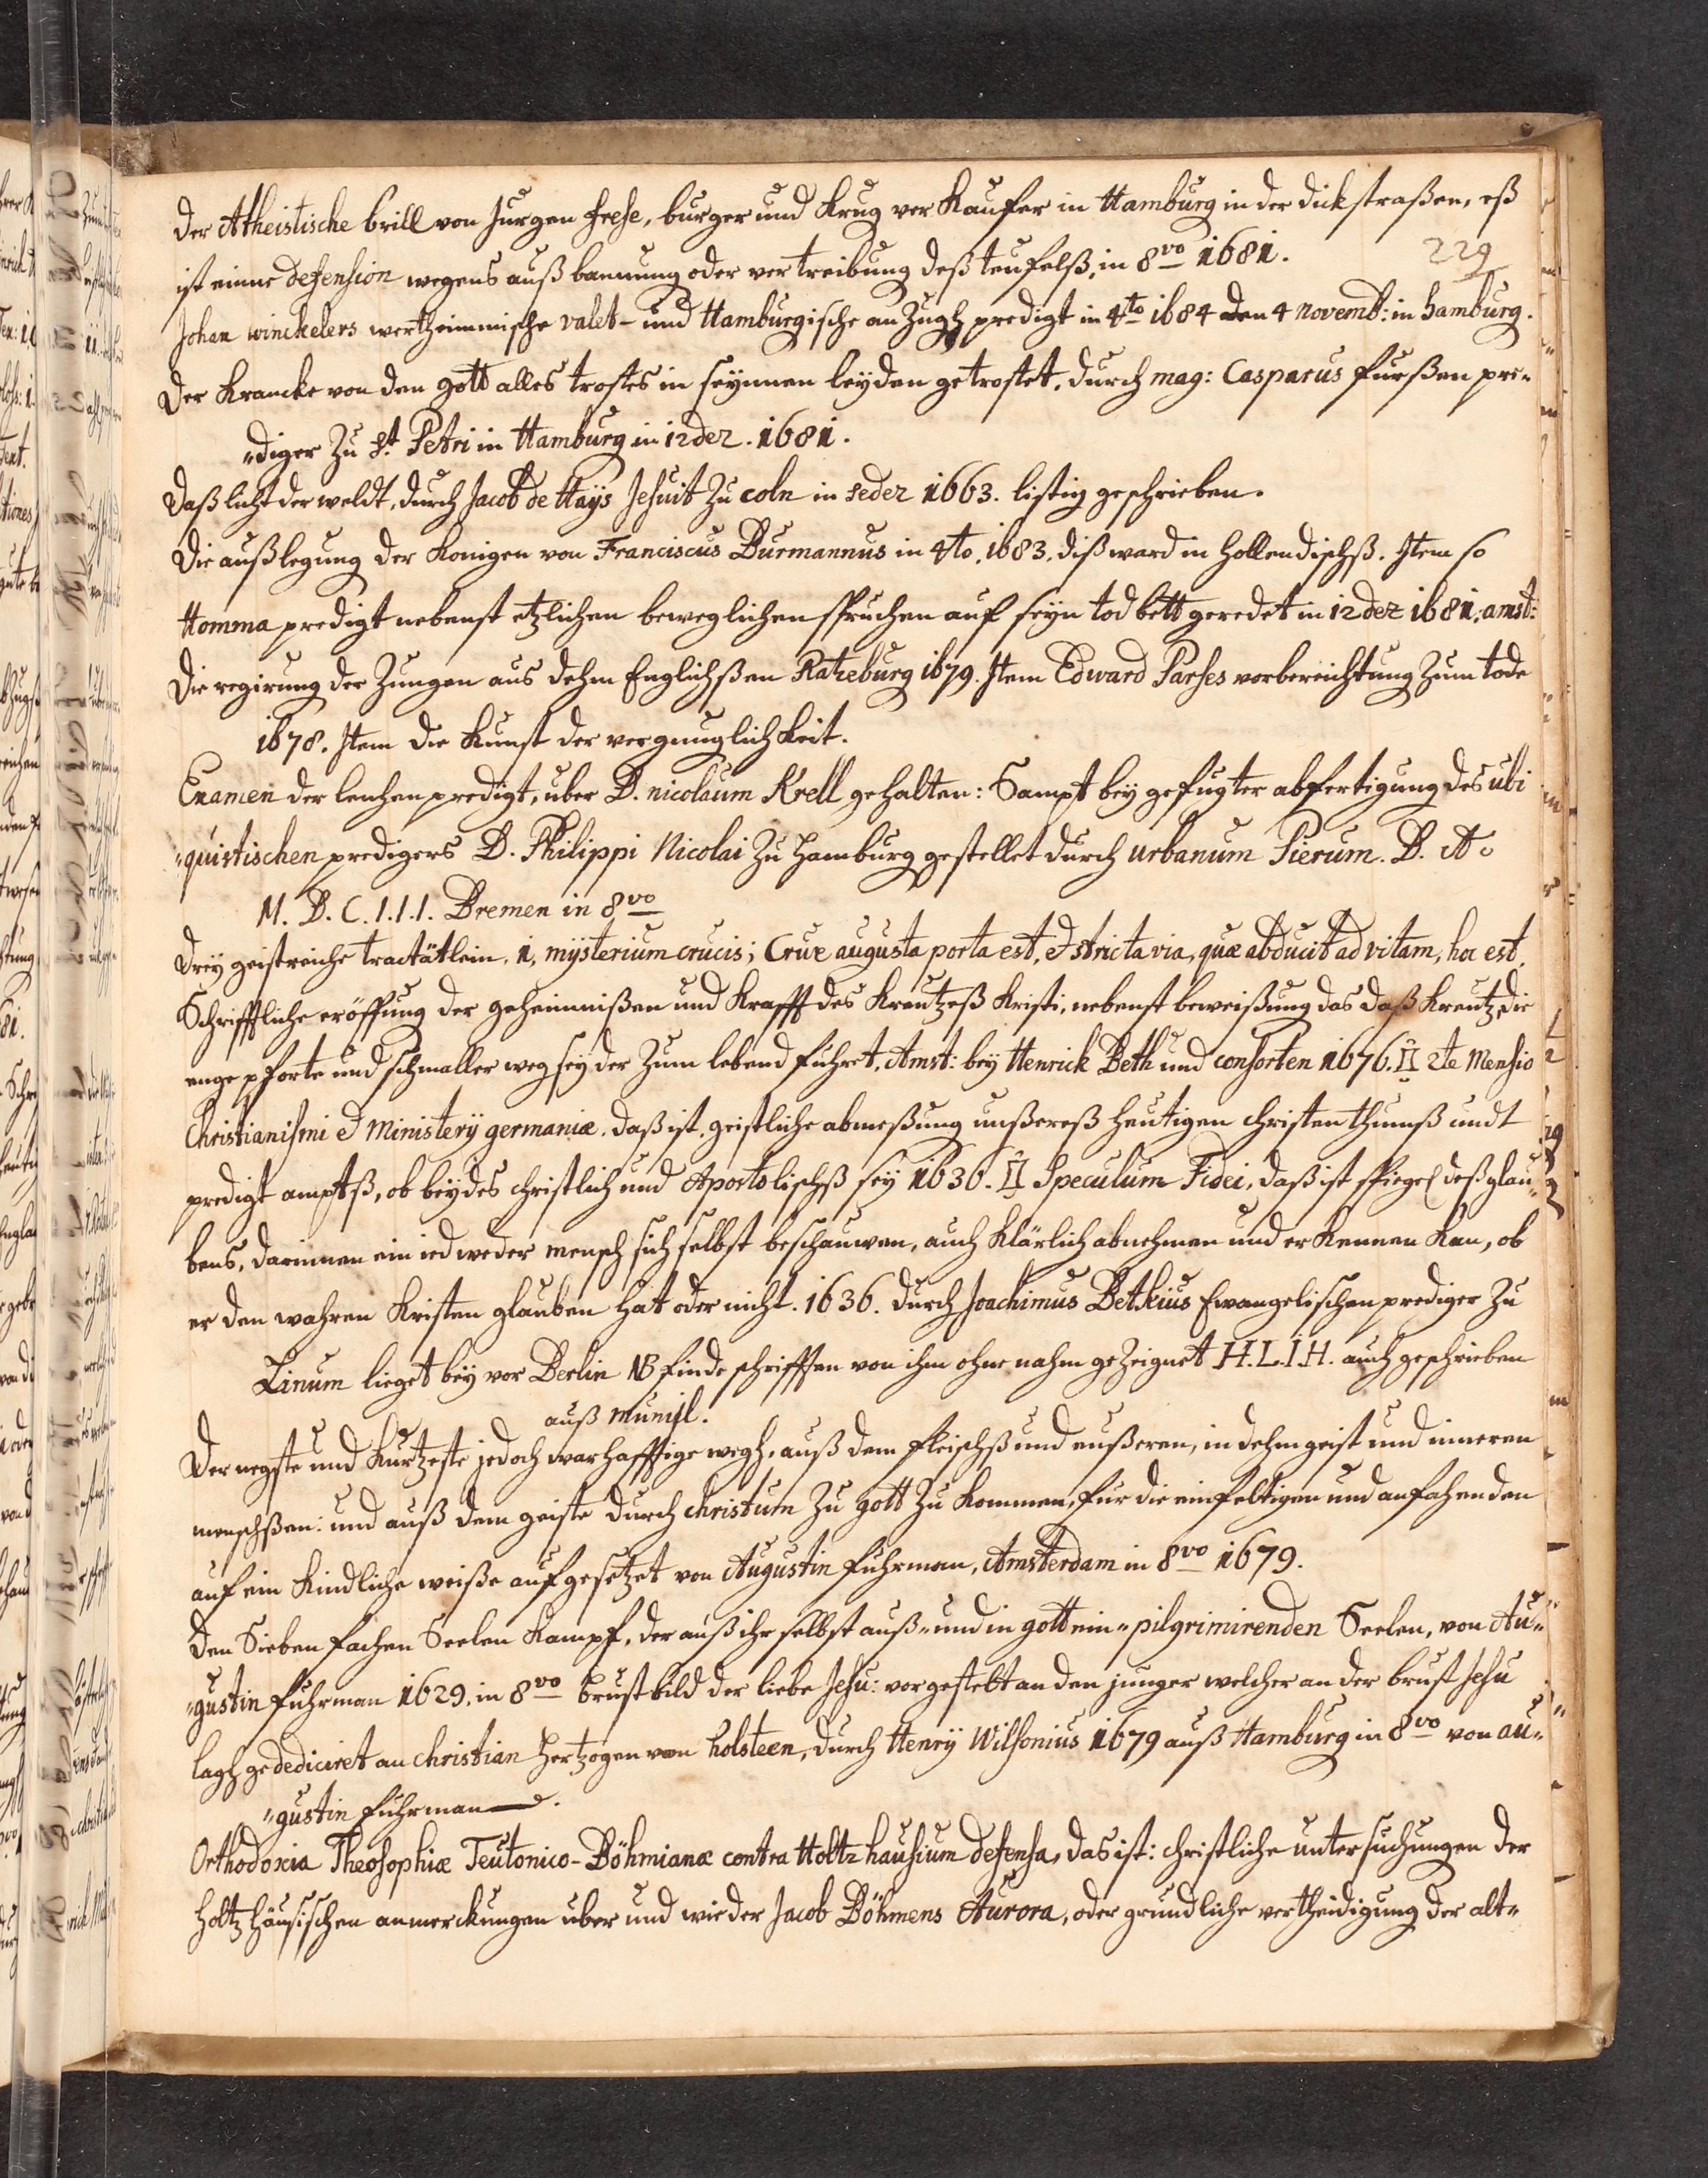 der Atheistische brill von Jurgen frese, burger und Krug ver Kaufer in Hamburg in der dickstraßen, eß
ist einne defension wegens auß bannung oder vertreibung deß teufelß, in 8vo 1681.
229
Johan winckelers wertheimmische valet- und Hamburgische anzugh predigt in 4to 1684 den 4 novemb: in hamburg.
der Krancke von den gott alles trostes in seynnen leyden getrostet, durch mag: Casparus furßen pre-
"diger zu St Petri in Hamburg in 12dez. 1681.
daß licht der weldt, durch Jacob de Hays Jesuit zu coln in sedez 1663. listig geschrieben.
die außlegung der Konigen von Franciscus Burmannus in 4to. 1683. diß ward in hollendischß. Item so
Homma predigt nebenst etzlichen beweglichen spruchen auf seyn tod bett geredet in 12dez 1681. amst:
die regirung der Zungen aus dehm Englichßen Ratzeburg 1679. Item Edward Parses vorbereichtung zum tode
1678. Item die Kunst der vergnuglichkeit.
Examen der leichen predigt, uber D. nicolaum Krell gehalten: Sampt bey gefugter abfertigung des ubi
"quistischen predigers D. Philippi Nicolai zu hamburg gestellet durch urbanum Pierum. D. Ao
M. D. C. I.I.I. Bremen in 8vo
drey geistreiche tractätlein. 1, mysterium crucis; Crux augusta porta est, et stricta via, quæ abducit ad vitam, hoc est,
Schrifftliche eröffung der geheimnißen und Krafft des Kreutzeß Kristi, nebenst beweißung das daß Kreutz, die
enge pforte und schmaller weg sey der zum lebend fuhret, Amst: bey Henrick Beth und consorten 1676. II 2te Mensio
Christianismi et Ministery germaniæ. daß ist. geistliche abmeßung unßereß heutigen christen thumß undt
predigt amptß, ob beydes christlich und Apostolischß sey 1636. II Speculum Fidei, daß ist spiegel deß glau-
bens, darinnen ein iedweder mensch sich selbst beschauwen, auch Klärlich abnehmen und erkennen Kan, ob
er den wahren Kristen glauben hat oder nicht. 1636. durch Joachimus Betkius Ewangelischen prediger zu
Linum lieget bey vor Berlin NB finde schrifften von ihm ohne nahm gezeignet H.L.I.H. auch geschrieben
auß
der negste und Kurtzeste jedoch warhafftige wegh, auß dem fleischß und eußeren, in dehm geist und inneren
menschßen: und auß dem geiste durch christum zu gott zu kommen, fur die einfeltigen und anfahenden
auf ein Kindliche weiße aufgesetzet von Augustin fuhrman, Amsterdam in 8vo 1679.
den Sieben fachen Seelen Kampf, der auß ihr selbst auß- und in gott ein-pilgrimirenden Seelen, von Au-
"gustin fuhrman 1629. in 8vo brustbild der liebe Jesu: vorgestelt an den junger welcher an der brust Jesu
lagh ge dediciret an christian hertzogen van holsteen, durch Henry Wilsonius 1679 auß Hamburg in 8vo von au-
"gustin fuhrman.
Orthodoxia Theosophiæ Teutonico-Böhmianæ contra Holtzhausium defensa, das ist: christliche untersuchungen der
holtz häusischen anmerckungen uber und wieder Jacob Böhmens Aurora, oder grundliche vertheidigung der alt-